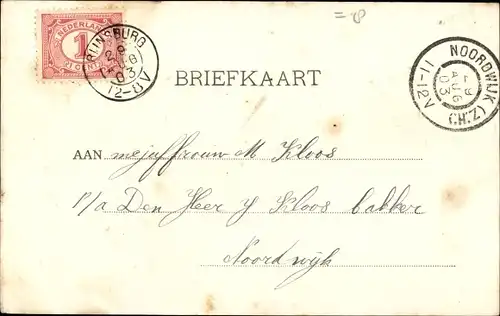 = 8
NEDERLAND
1
CENT
RIJNSBURG
29
AUG
03
12-8V
NOORDWIJK
11-12V
29
AUG
03
(H:Z)
BRIEFKAART
AAN mejuffrouw M Kloos
p/a Den Heer J Kloos bakker
Noordwijk